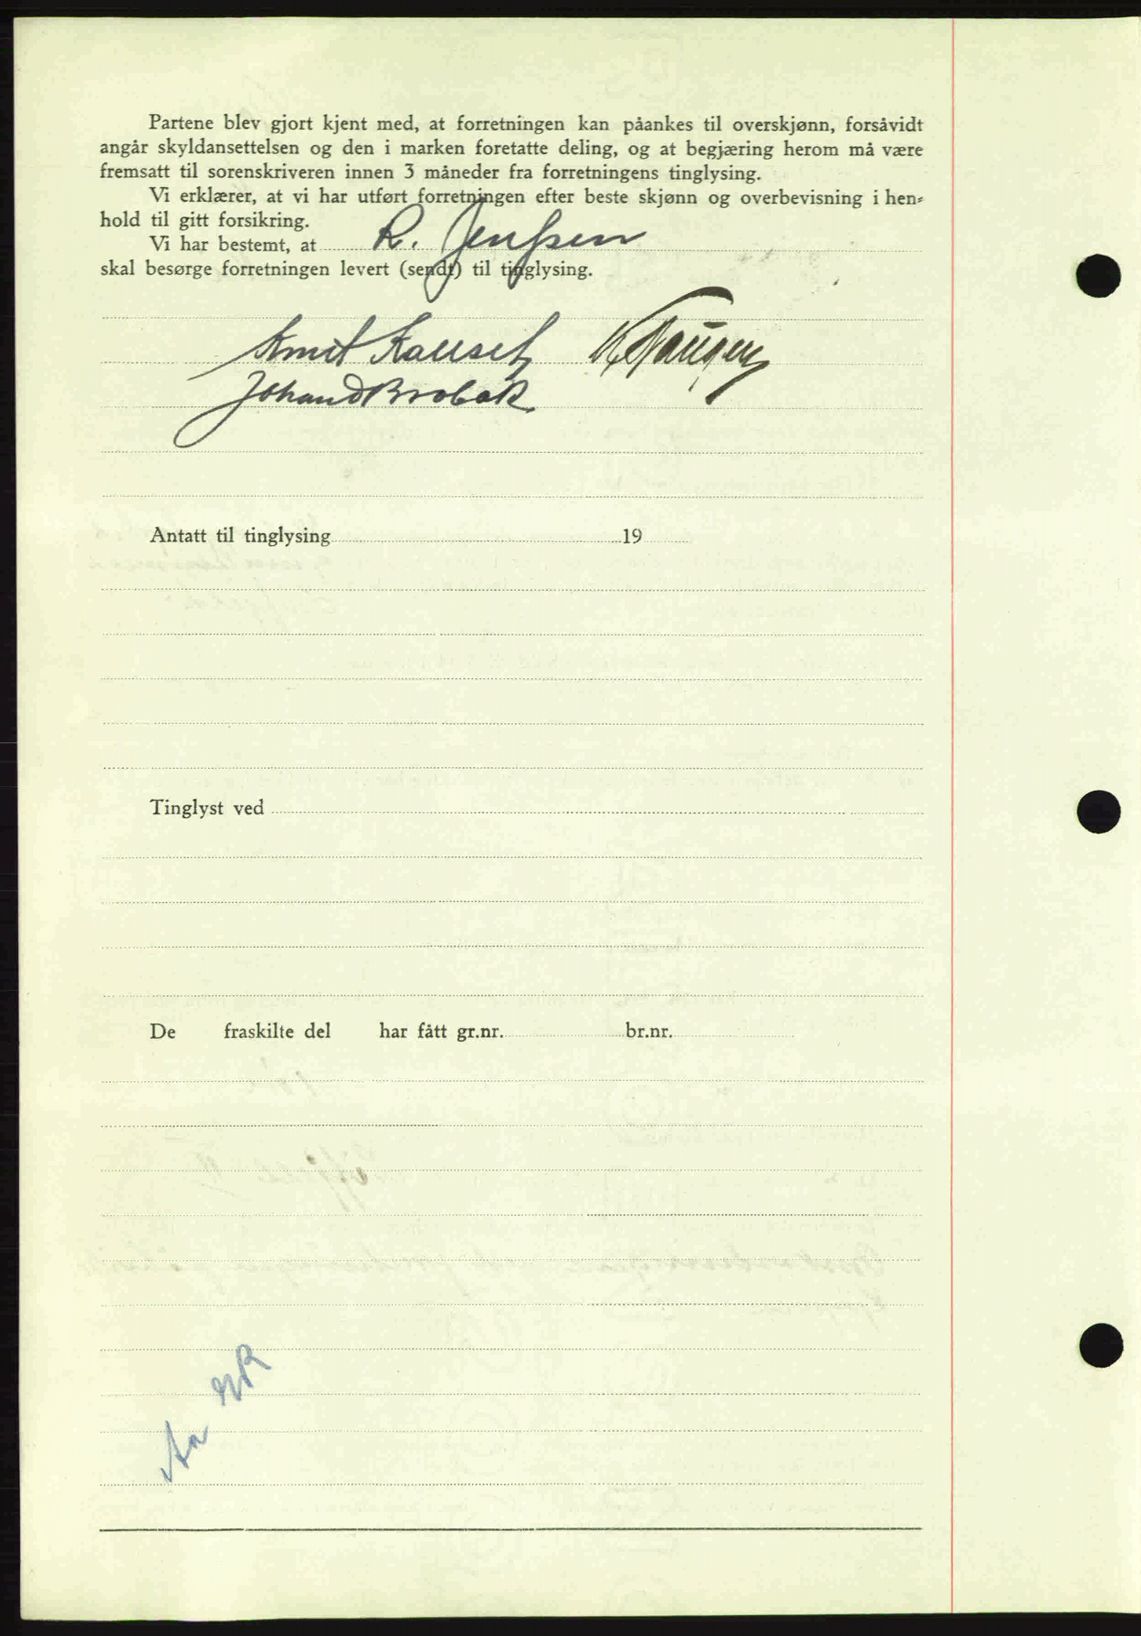 Partene blev gjort kjent med, at forretningen kan påankes til overskjønn, forsåvidt
angår skyldansettelsen og den i marken foretatte deling, og at begjæring herom må være
fremsatt til sorenskriveren innen 3 måneder fra forretningens tinglysing.
Vi erklærer, at vi har utført forretningen efter beste skjønn og overbevisning i hen-
hold til gitt forsikring.
Vi har bestemt, at R. Jenssen
skal besørge forretningen levert (sendt) til tinglysing.
Knut Kalset K Haugen
Johan D Brobak
Antatt til tinglysing 19
Tinglyst ved
De fraskilte del har fått gr.nr. br.nr.